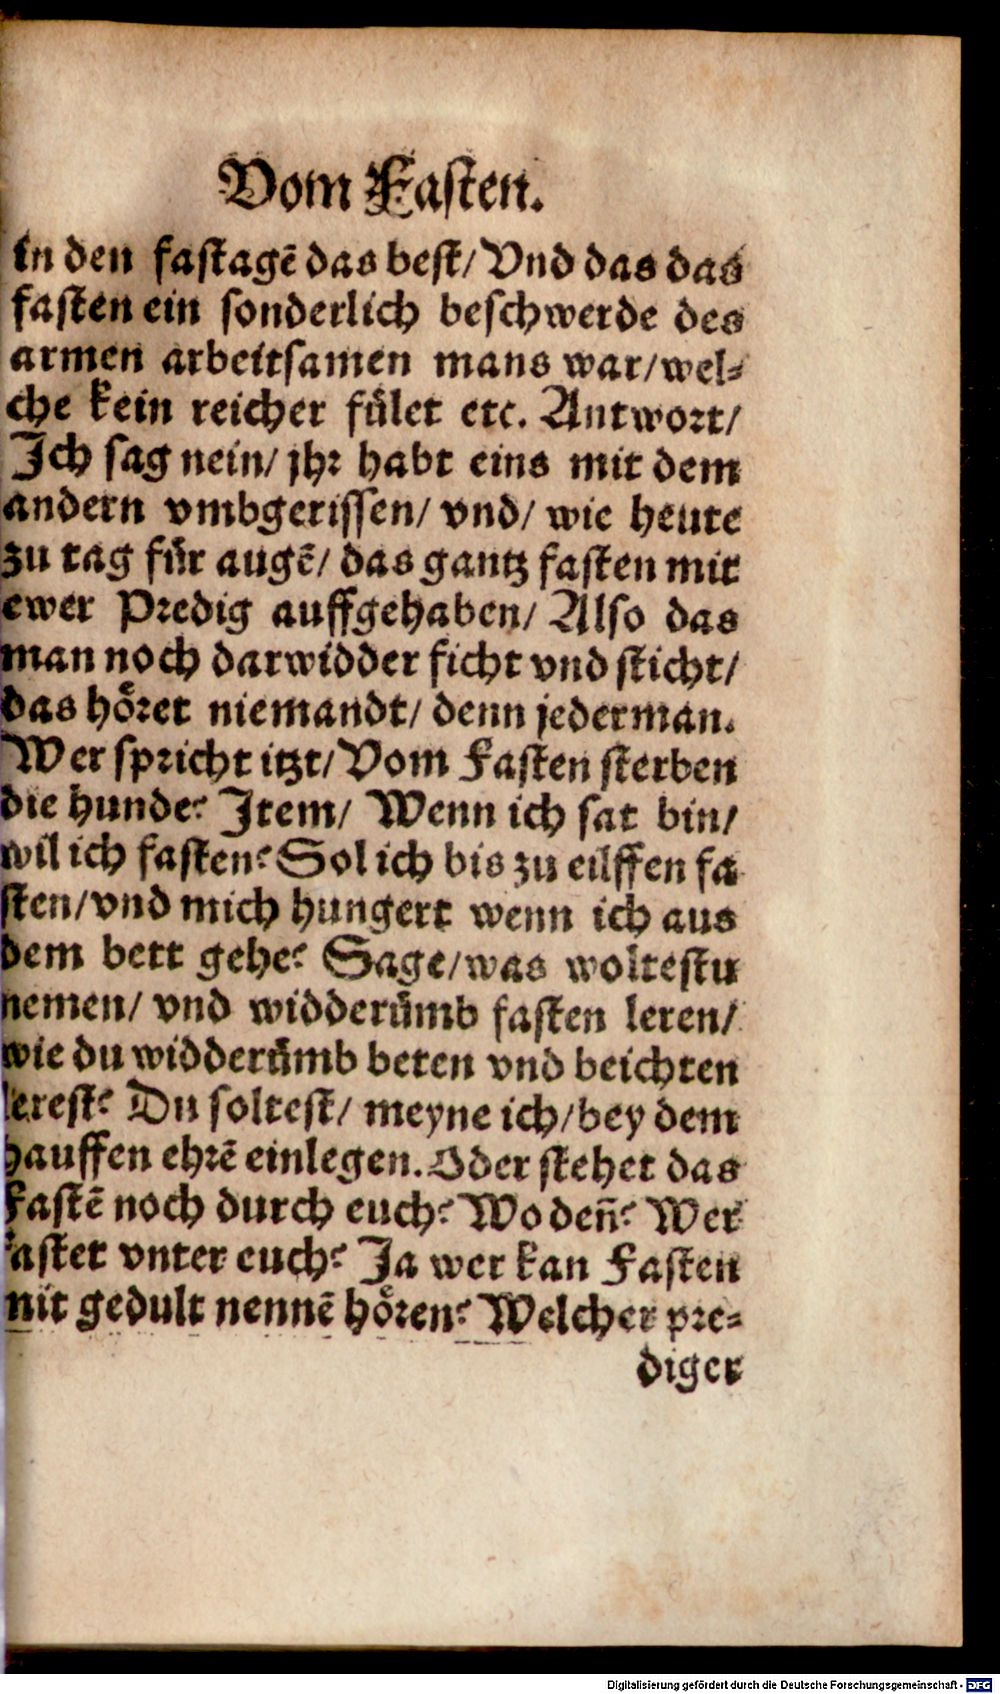 Vom Fasten.
in den fastagē das best/ Vnd das das
fasten ein sonderlich beschwerde des
armen arbeitsamen mans war/ wel⸗
che kein reicher fület etc. Antwort/
Ich sag nein/ jhr habt eins mit dem
andern vmbgerissen/ vnd/ wie heute
zu tag für augē/ das gantz fasten mit
ewer Predig auffgehaben/ Also das
man noch darwidder ficht vnd sticht/
das höret niemandt/ denn jederman.
Wer spricht itzt/ Vom Fasten sterben
die hunde? Item/ Wenn ich sat bin/
wil ich fasten? Sol ich bis zu eilffen fa
sten/ vnd mich hungert wenn ich aus
dem bett gehe? Sage/ was woltestu
nemen/ vnd widderümb fasten leren/
wie du widderümb beten vnd beichten
lerest? Du soltest/ meyne ich/ bey dem
hauffen ehrē einlegen. Oder stehet das
Fastē noch durch euch? Wo deñ? Wer
fastet vnter euch? Ja wer kan Fasten
mit gedult nennē hören? Welcher pre⸗
diger
Digitalisierung gefördert durch die Deutsche Forschungsgemeinschaft - DFG